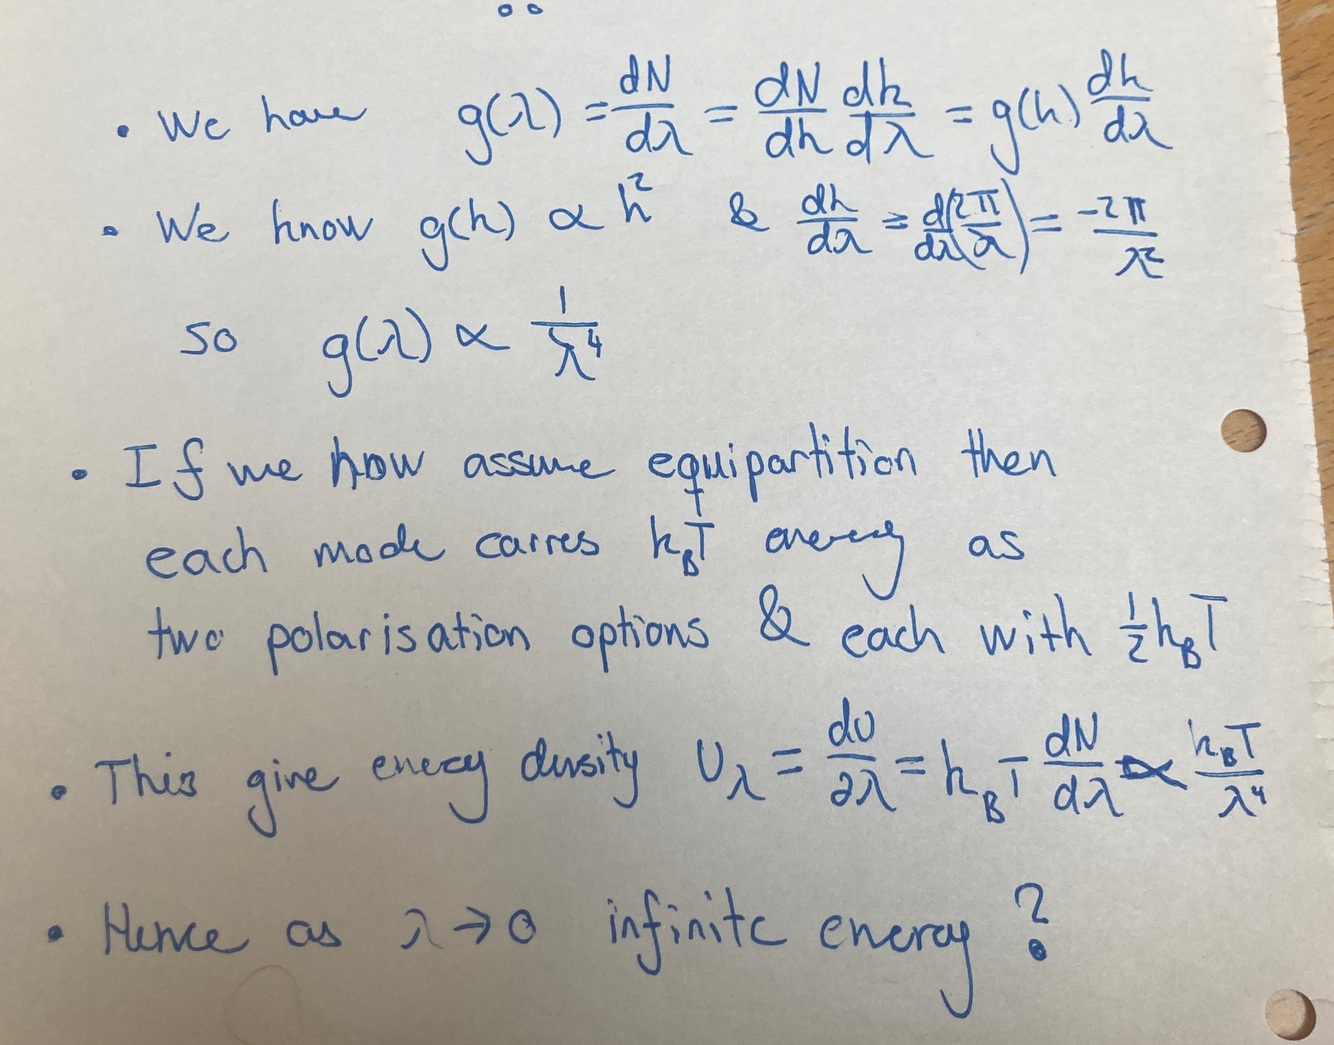 • We have g(λ) = dN/dλ = dN/dk dk/dλ = g(k) dk/dλ
• We know g(k) ∝ k² & dk/dλ = d/dλ(2π/λ) = -2π/λ²
so g(λ) ∝ 1/λ⁴
• If we now assume equipartition then
each mode carres k_BT energy as
two polarisation options & each with ½k_BT
• This give energy density U_λ = dU/∂λ = k_BT dN/dλ ∝ k_BT/λ⁴
• Hence as λ→0 infinite energy?